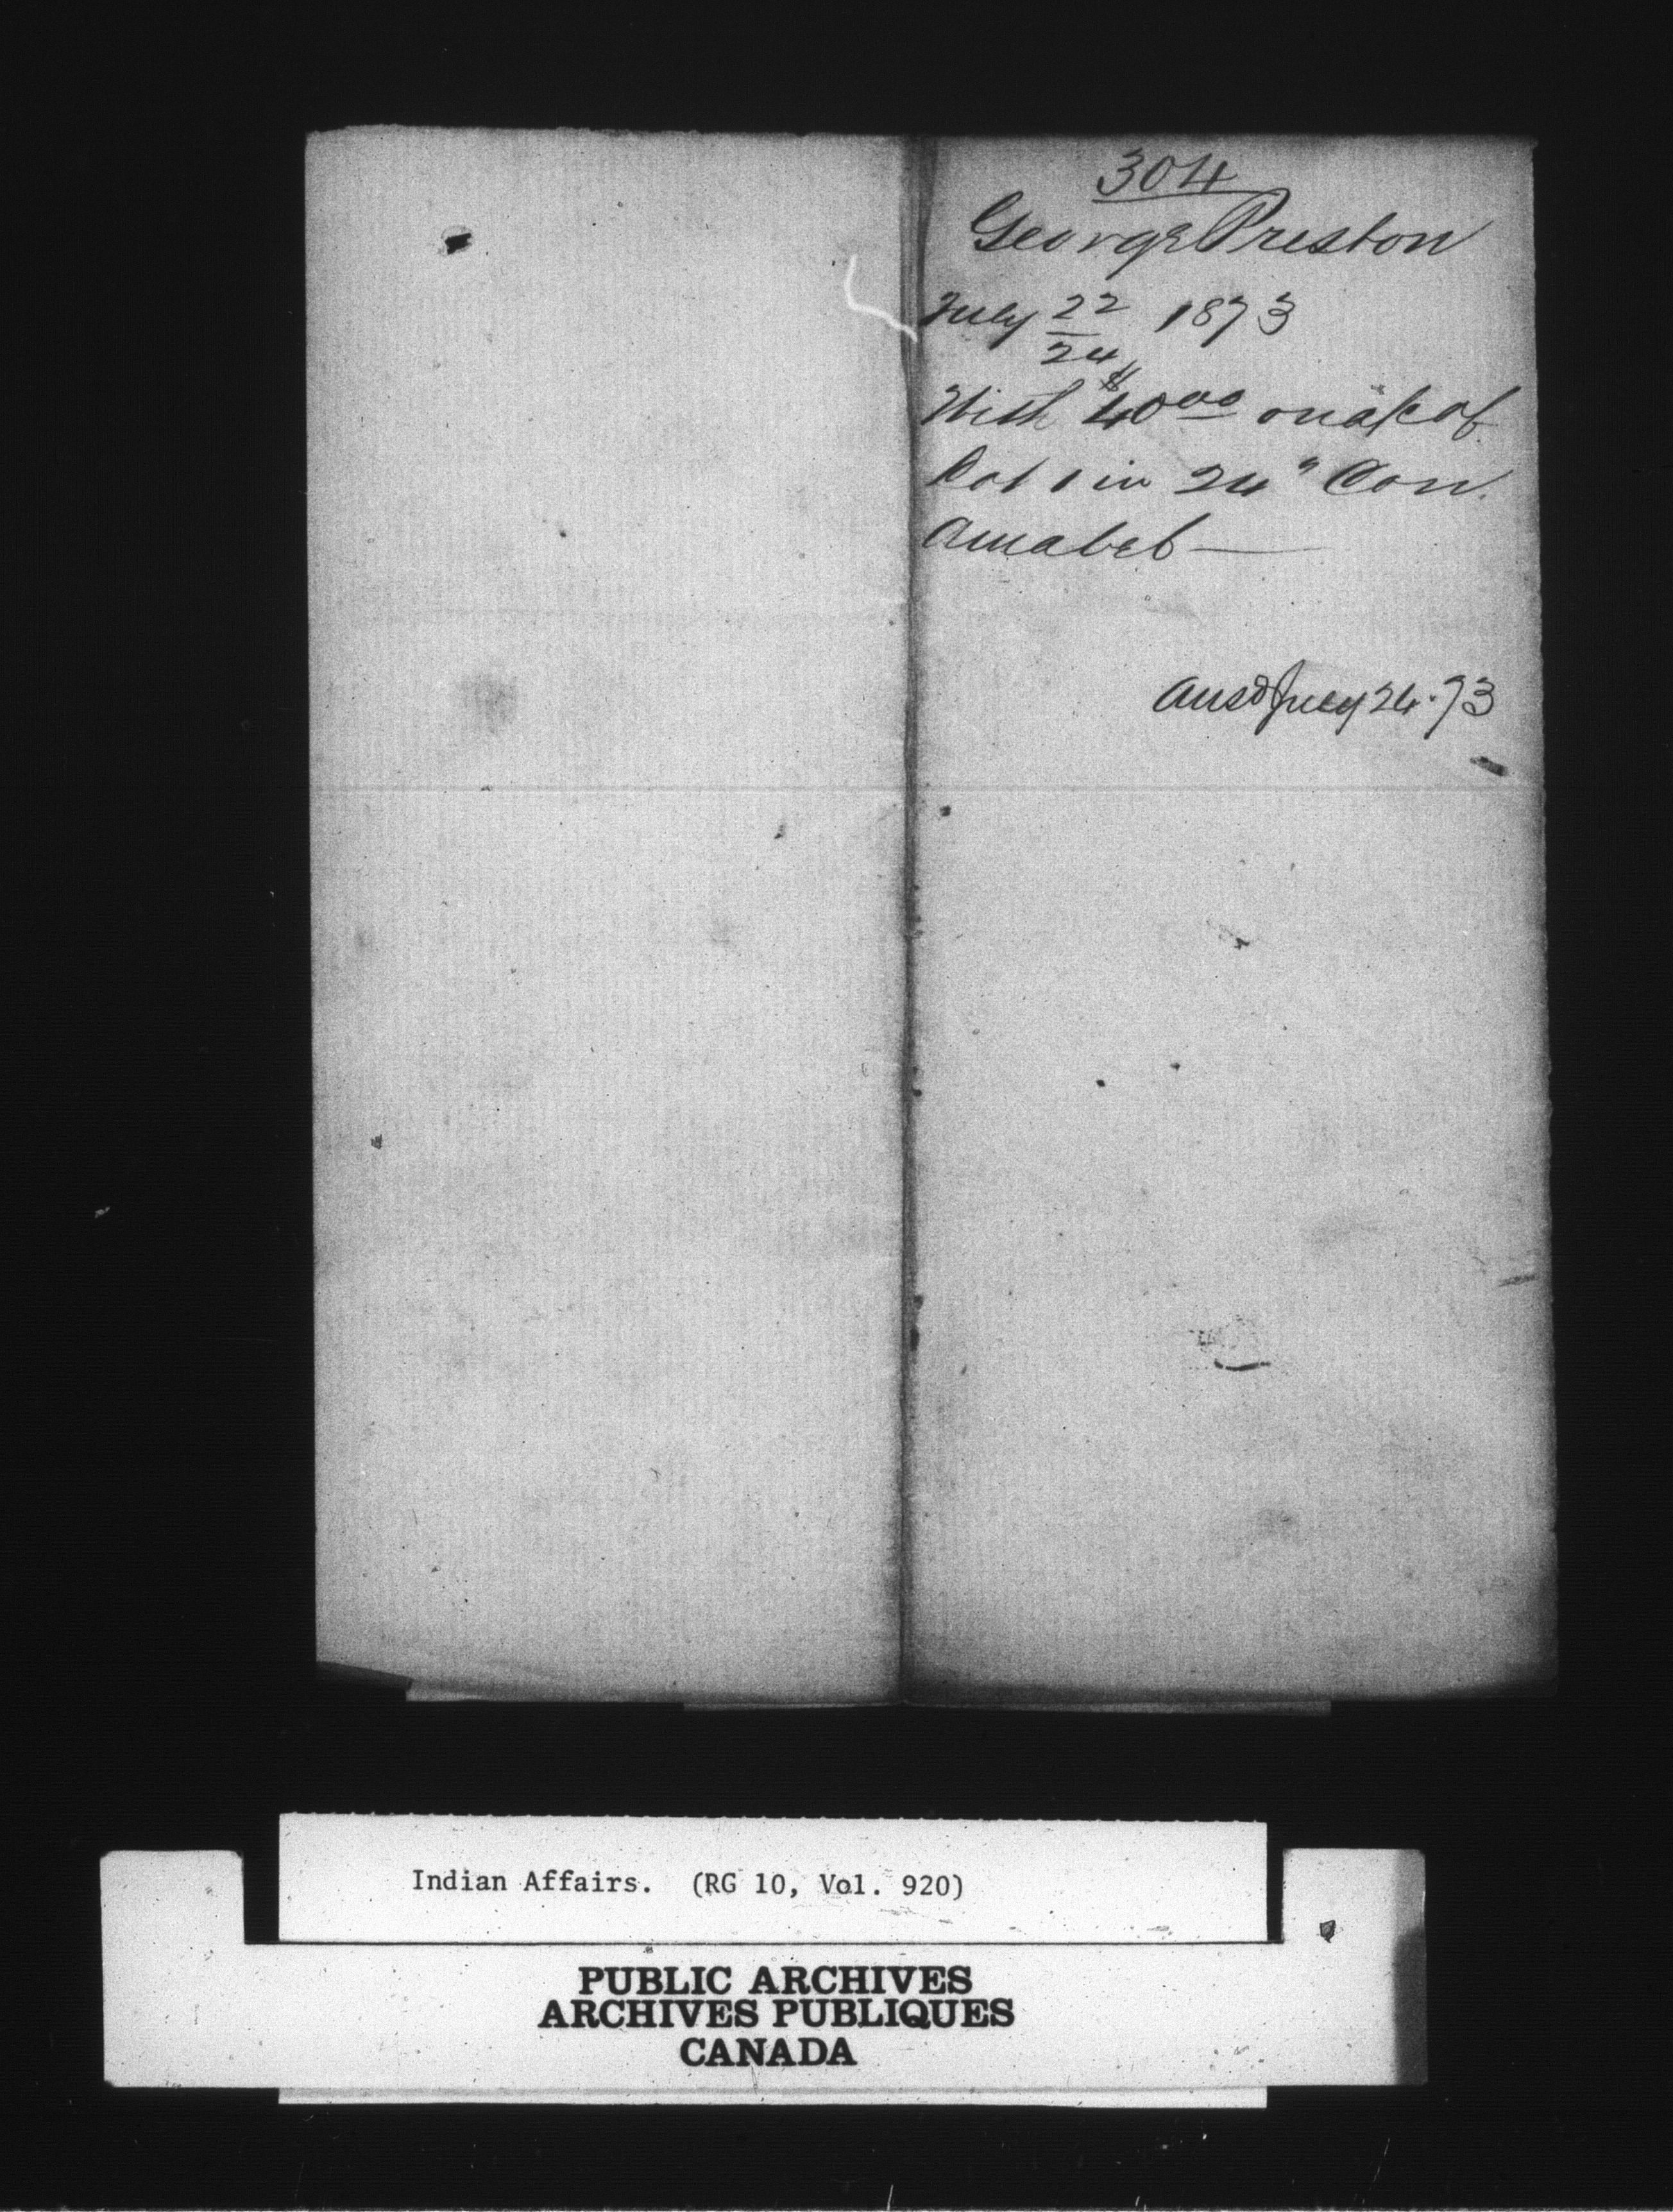 304
George Preston
July 22 1873
24
With $40.00 on a/c of
Lot 1 in 24" Con.
Amabel —
Ansd July 24. 73
Indian Affairs. (RG 10, Vol. 920)
PUBLIC ARCHIVES
ARCHIVES PUBLIQUES
CANADA